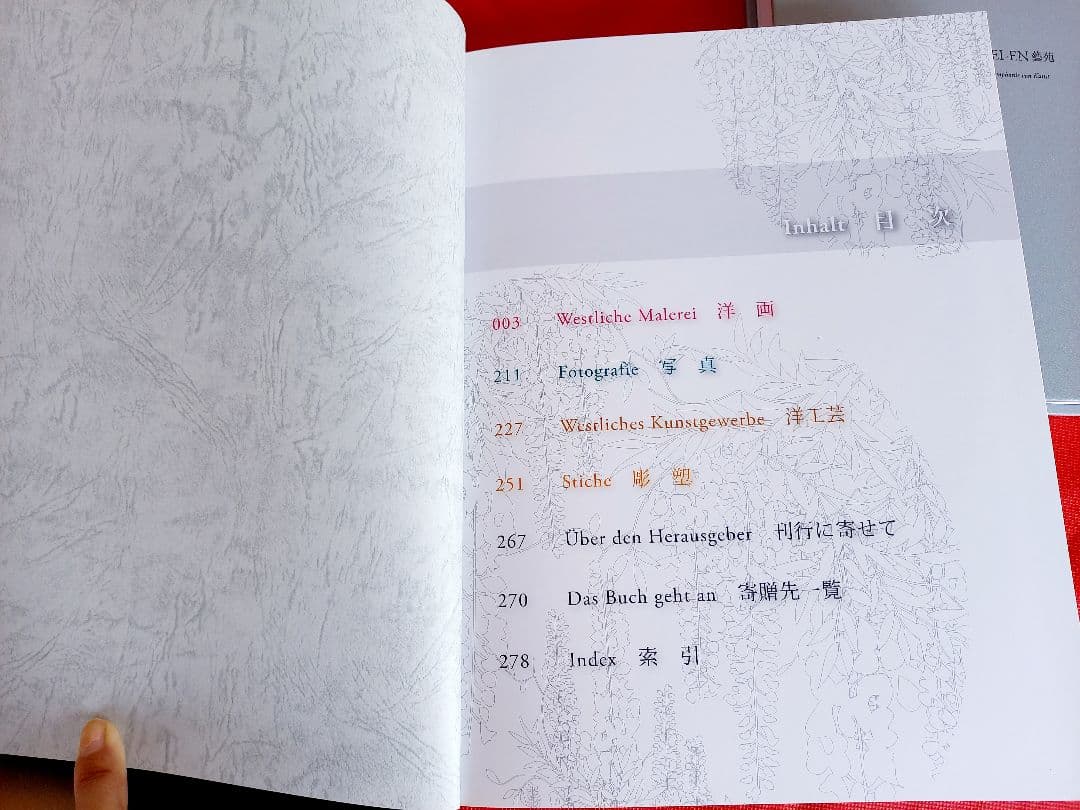 EI-EN 藝苑
Inhalt 目 次
003 Westliche Malerei 洋 画
211 Fotografie 写 真
227 Westliches Kunstgewerbe 洋工芸
251 Stiche 彫 塑
267 Über den Herausgeber 刊行に寄せて
270 Das Buch geht an 寄贈先一覧
278 Index 索 引